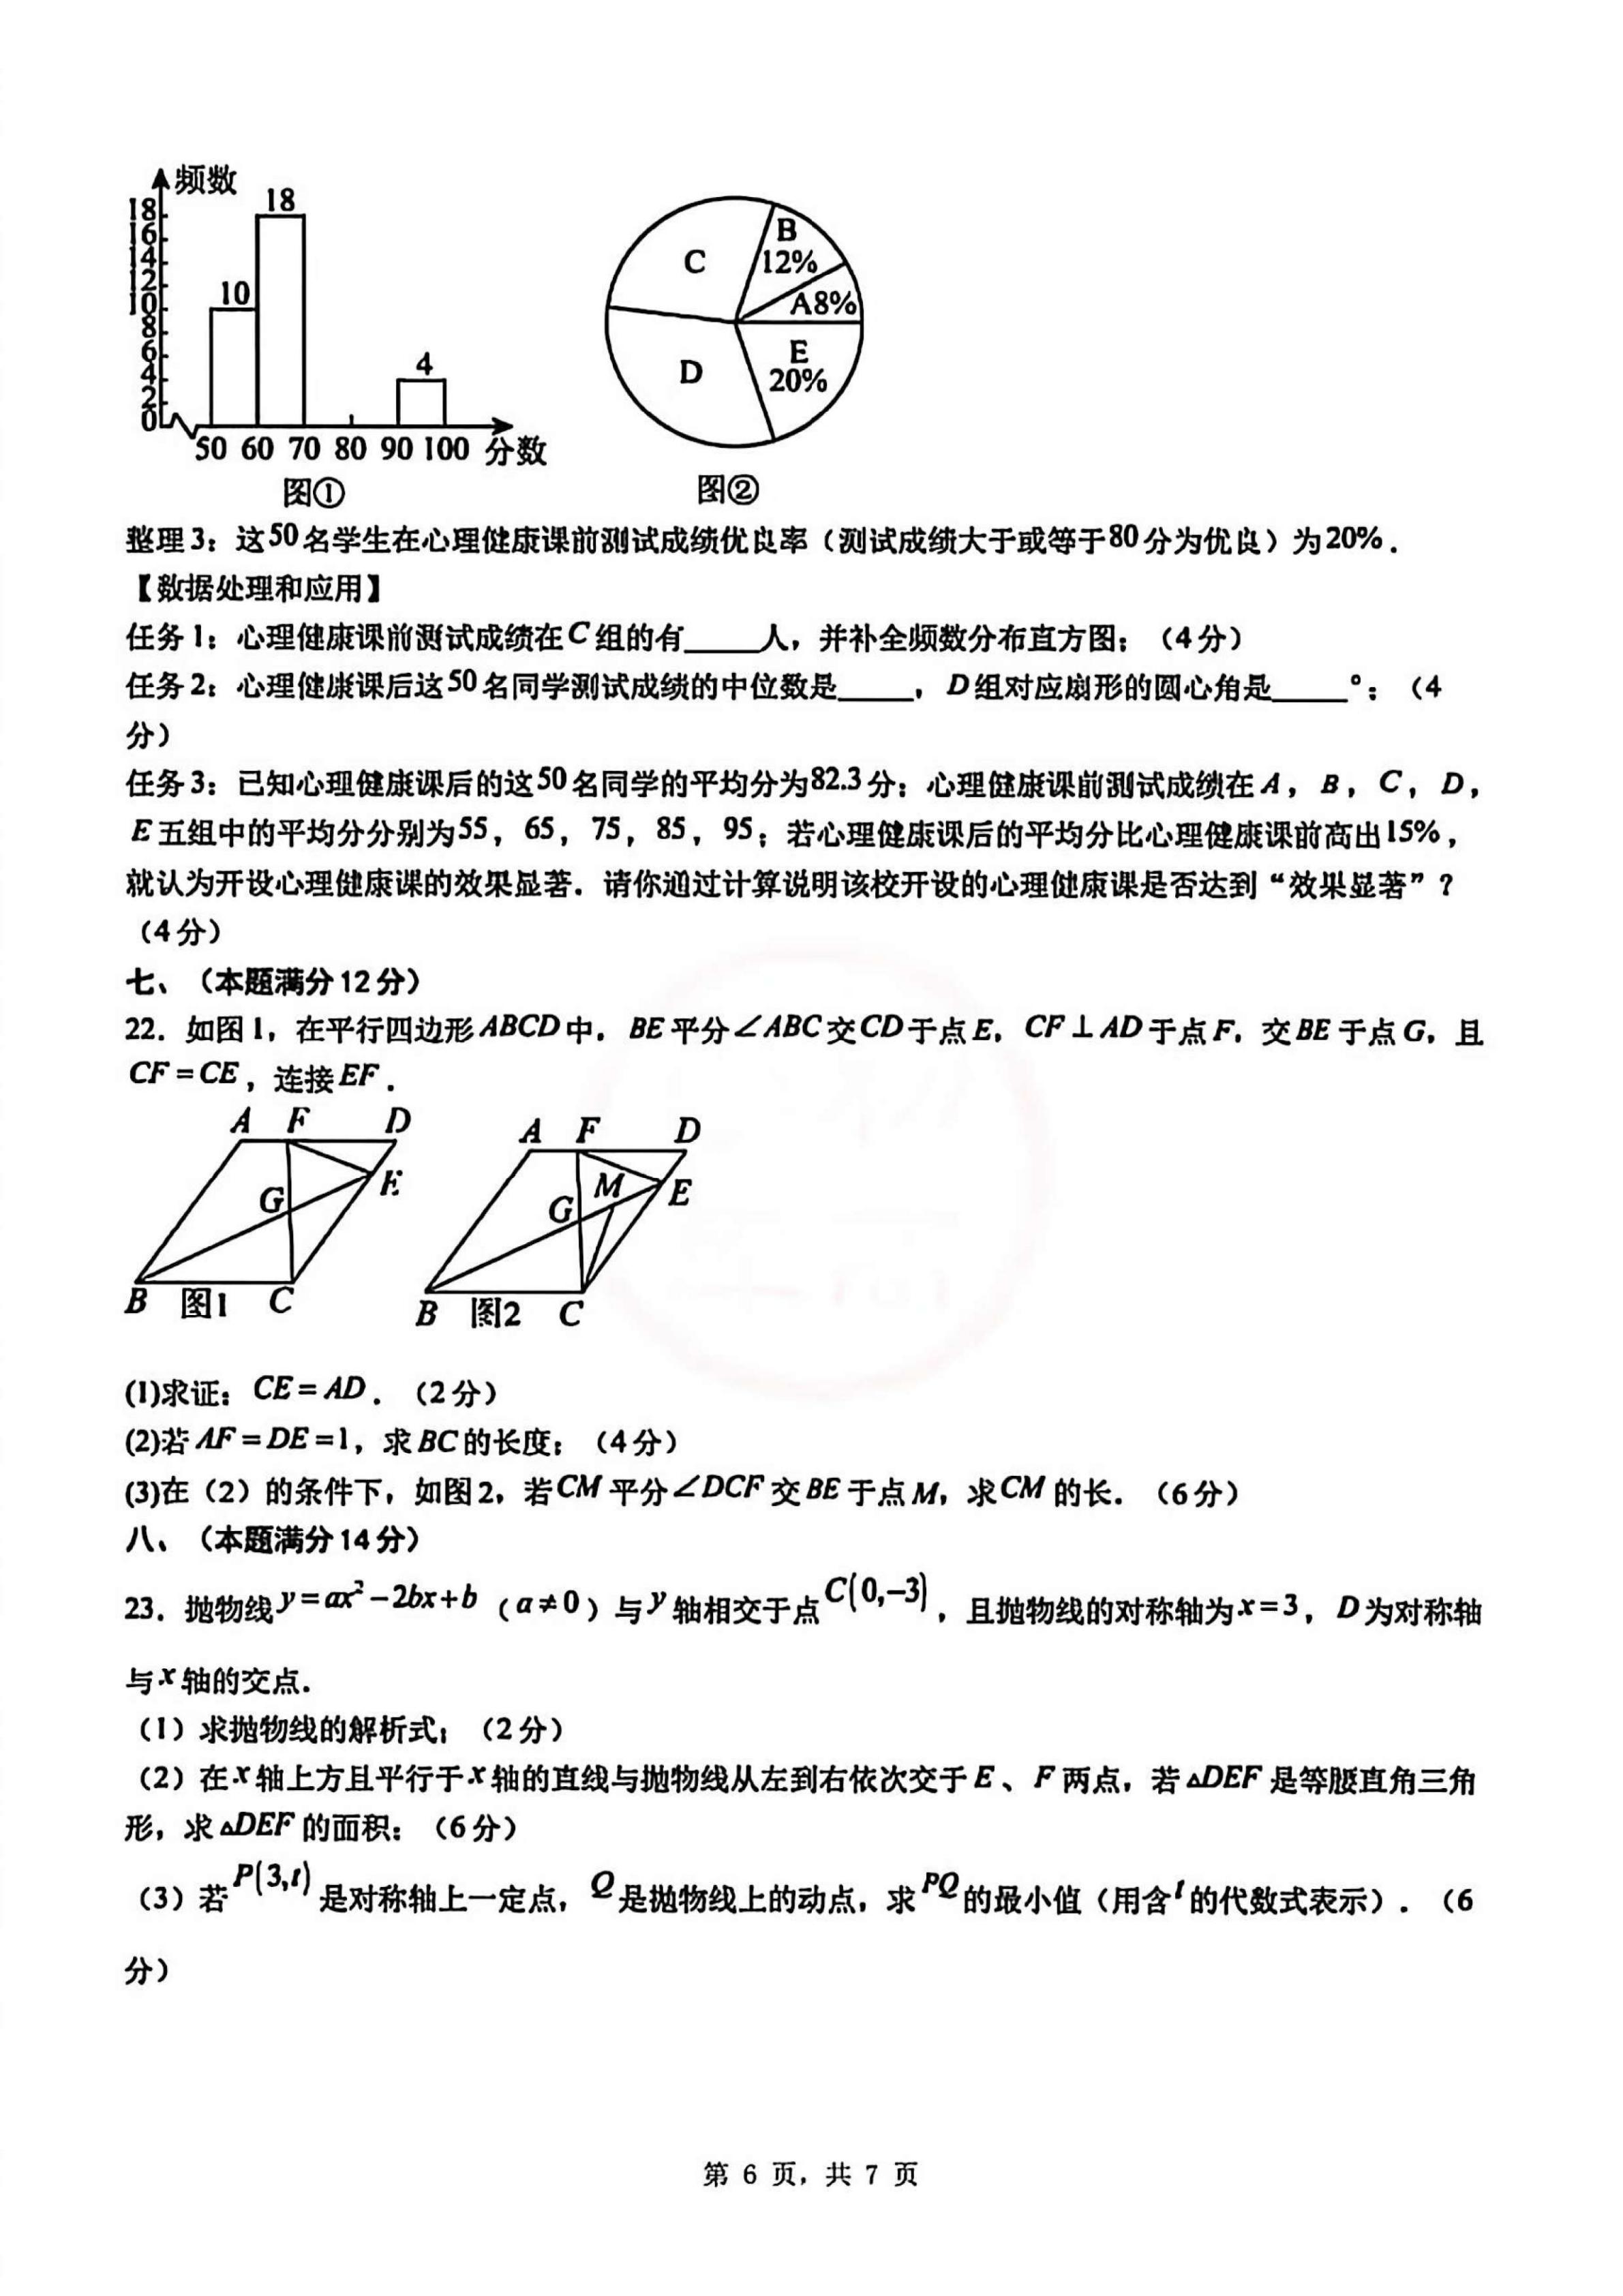 频数
18
16
14
12
10
8
6
4
2
0
10
18
4
50 60 70 80 90 100 分数
图①
C
B
12%
A8%
D
E
20%
图②
整理3：这50名学生在心理健康课前测试成绩优良率（测试成绩大于或等于80分为优良）为20%．
【数据处理和应用】
任务1：心理健康课前测试成绩在C组的有_____人，并补全频数分布直方图；（4分）
任务2：心理健康课后这50名同学测试成绩的中位数是_____，D组对应扇形的圆心角是_____°；（4
分）
任务3：已知心理健康课后的这50名同学的平均分为82.3分；心理健康课前测试成绩在A，B，C，D，
E五组中的平均分分别为55，65，75，85，95；若心理健康课后的平均分比心理健康课前高出15%，
就认为开设心理健康课的效果显著．请你通过计算说明该校开设的心理健康课是否达到“效果显著”？
（4分）
七、（本题满分12分）
22．如图1，在平行四边形ABCD中，BE平分∠ABC交CD于点E，CF⊥AD于点F，交BE于点G，且
CF=CE，连接EF．
A F D
G E
B 图1 C
A F D
M
G E
B 图2 C
(1)求证：CE=AD．（2分）
(2)若AF=DE=1，求BC的长度；（4分）
(3)在（2）的条件下，如图2，若CM平分∠DCF交BE于点M，求CM的长．（6分）
八、（本题满分14分）
23．抛物线y=ax²-2bx+b（a≠0）与y轴相交于点C(0,-3)，且抛物线的对称轴为x=3，D为对称轴
与x轴的交点．
（1）求抛物线的解析式；（2分）
（2）在x轴上方且平行于x轴的直线与抛物线从左到右依次交于E、F两点，若△DEF是等腰直角三角
形，求△DEF的面积；（6分）
（3）若P(3,t)是对称轴上一定点，Q是抛物线上的动点，求PQ的最小值（用含t的代数式表示）．（6
分）
第 6 页，共 7 页